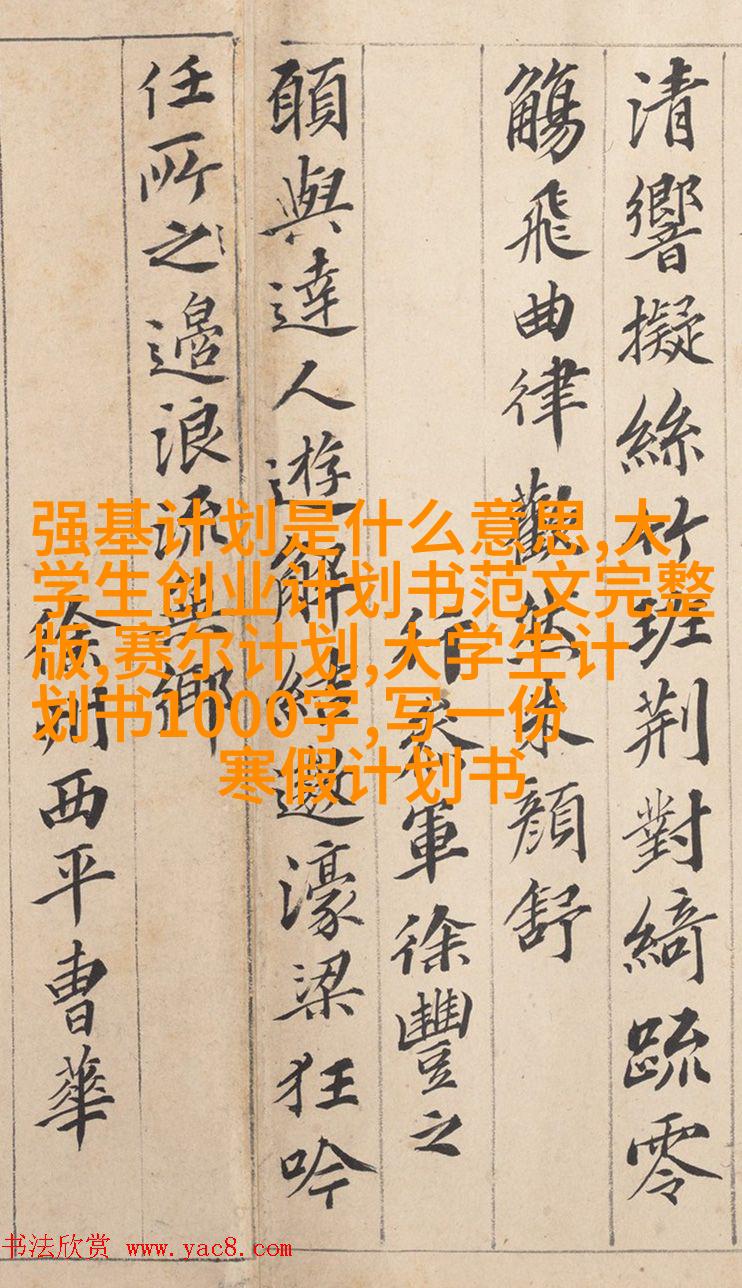 清響擬絲竹班荆對綺䟽零
觴飛曲律歡然朱顏舒
行參軍徐豐之
願與達人遊解結遨濠梁狂吟
任所之邉浪流無鄉
徐州西平曹華
强基计划是什么意思,大
学生创业计划书范文完整
版,赛尔计划,大学生计
划书1000字,写一份
寒假计划书
书法欣赏 www.yac8.com